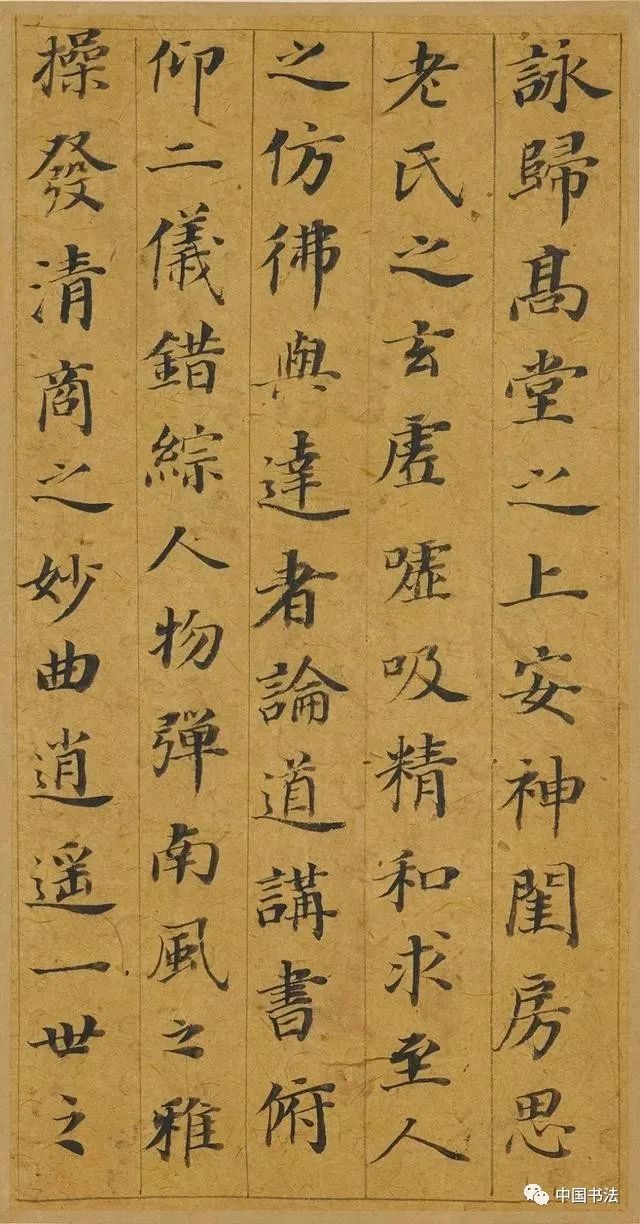 詠歸高堂之上安神閨房思
老氏之玄虛噓吸精和求至人
之仿彿與達者論道講書俯
仰二儀錯綜人物彈南風之雅
操發清商之妙曲逍遥一世之
中国书法